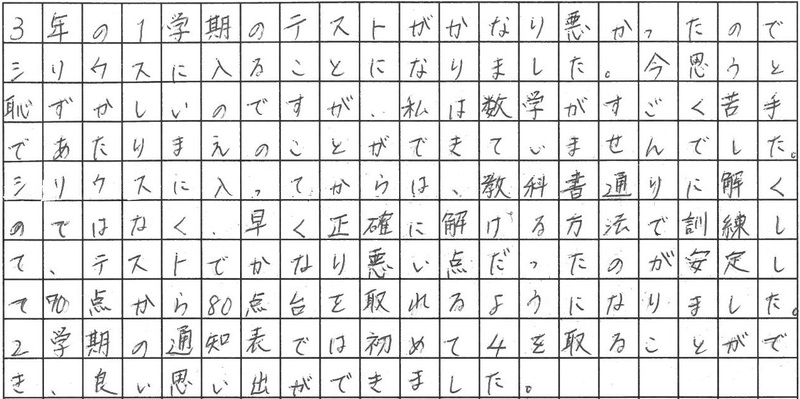 3年の1学期のテストがかなり悪かったので
シリウスに入ることになりました。今思うと
恥ずかしいのですが、私は数学がすごく苦手
であたりまえのことができていませんでした。
シリウスに入ってからは、教科書通りに解く
のではなく、早く正確に解ける方法で訓練し
て、テストでかなり悪い点だったのが安定し
て70点から80点台を取れるようになりました。
2学期の通知表では初めて4を取ることがで
き、良い思い出ができました。